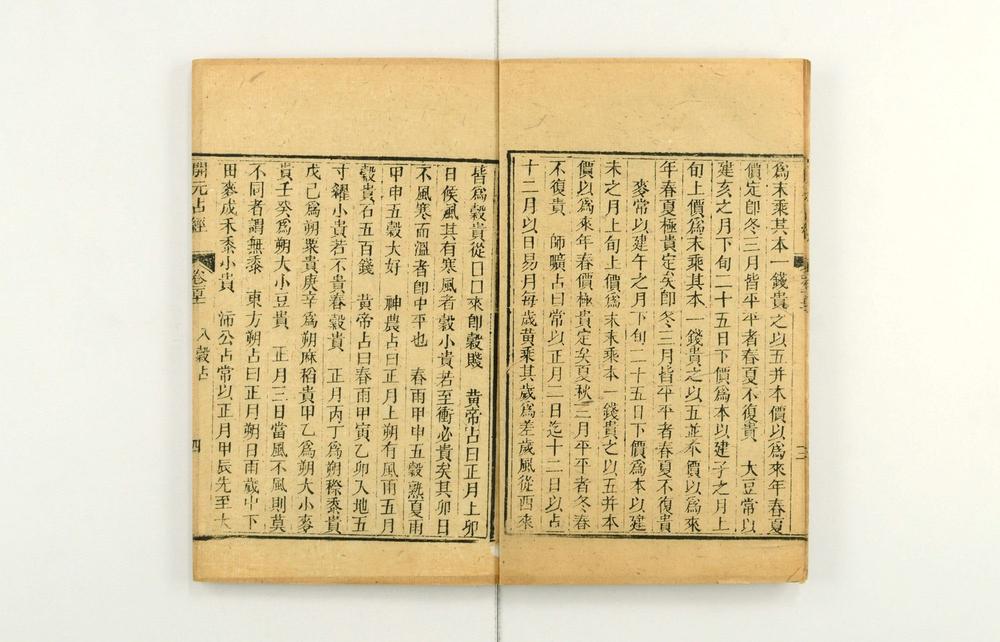 爲末乘其本一錢貴之以五并本價以爲來年春夏
價定卽冬三月皆平平者春夏不復貴　大豆常以
建亥之月下旬二十五日下價爲本以建子之月上
旬上價爲末乘其本一錢貴之以五並本價以爲來
年春夏極貴定矣卽冬三月皆平平者春夏不復貴
麥常以建午之月下旬二十五日下價爲本以建
未之月上旬上價爲末末乘本一錢貴之以五并本
價以爲來年春價極貴定矣夏秋三月平平者冬春
不復貴　師曠占曰常以正月二日迄十二日以占
十二月以日易月每歲黃乘其歲爲差歲風從西來
皆爲穀貴從口口來卽穀賤　黃帝占曰正月上卯
日候風其有寒風者穀小貴若至衝必貴矣其卯日
不風寒而溫者卽中平也　春雨甲申五穀熟夏雨
甲申五穀大好　神農占曰正月上朔有風雨五月
穀貴石五百錢　黃帝占曰春雨甲寅乙卯入地五
寸糴小貴若不貴春穀貴　正月丙丁爲朔穄黍貴
戊己爲朔粟貴庚辛爲朔麻稻貴甲乙爲朔大小麥
貴壬癸爲朔大小豆貴　正月三日當風不風則莫
不同者謂無黍　東方朔占曰正月朔日雨歲中下
田麥成禾黍小貴　沛公占常以正月甲辰先至大
開元占經　八穀占　四